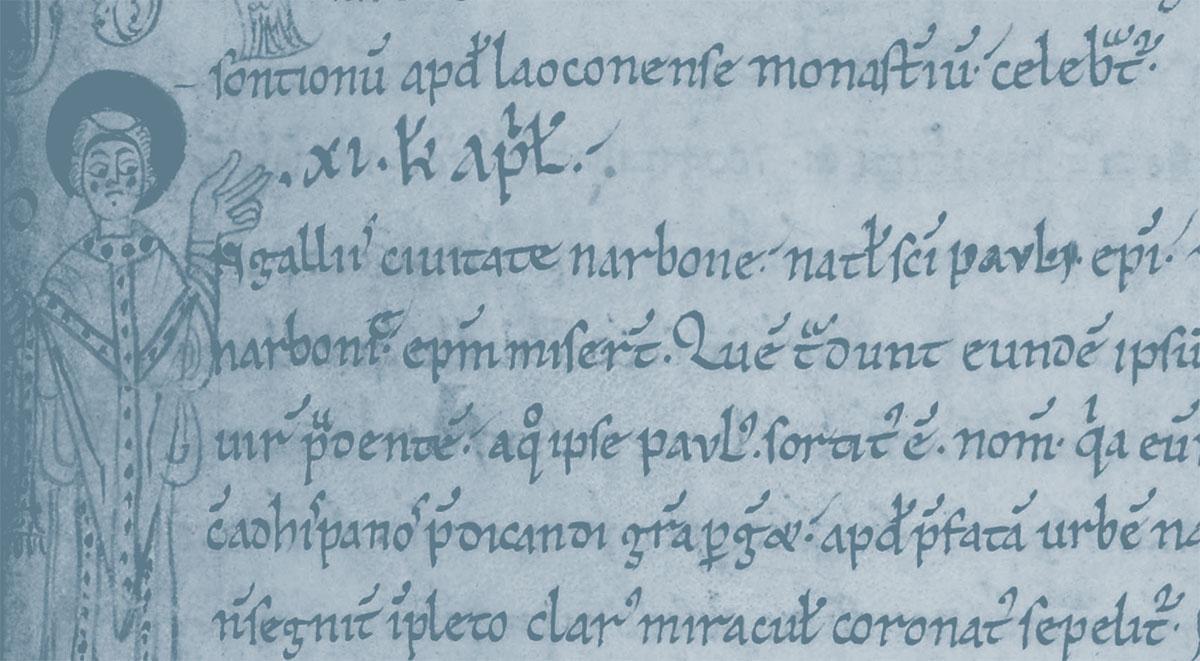 sontionū apđ laoconense monastīū· celebr̄t·
.xi. kł apłł.
galliis ciuitate narbone· natł sci pauli epi·
narbonē· epm misert̄. Quē t̄dunt eundē ipsū
uir p̄dentē· aq° ipse paul⁹· sortit⁹ ē· nom̄· qia eū
c̄ ad hispanos p̄dicandi gr̄a p̱gēt· apđ p̄fatā urbē na
n̄ segnit̄ īpleto clar⁹ miracuł coronat⁹ sepelit̄·